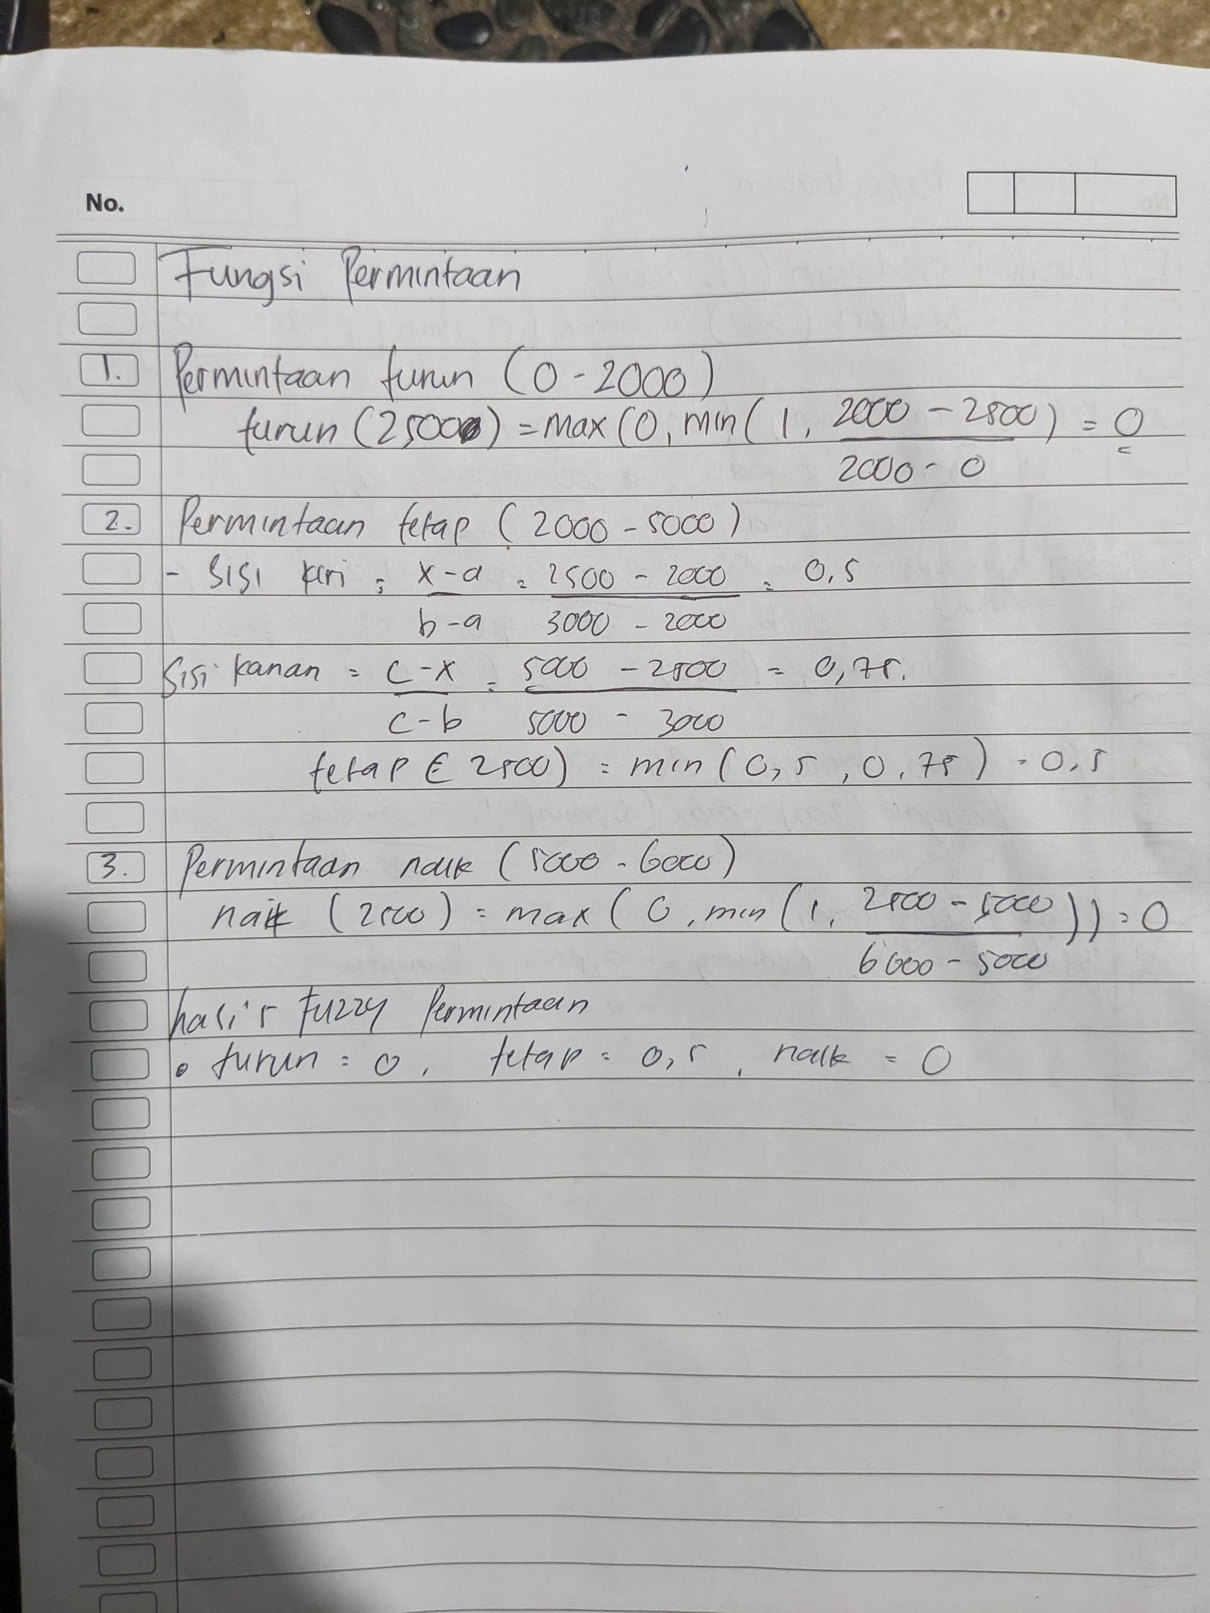 No.
Fungsi Permintaan
1. Permintaan turun (0 - 2000)
turun (2500) = max (0, min ( 1, 2000 - 2500 ) = 0
2000 - 0
2. Permintaan tetap (2000 - 5000)
- Sisi kiri = x-a = 2500 - 2000 = 0,5
b-a 3000 - 2000
Sisi kanan = c-x = 5000 - 2500 = 0,75.
c-b 5000 - 3000
tetap (2500) = min (0,5, 0,75) = 0,5
3. Permintaan naik (5000 - 6000)
naik (2500) = max ( 0, min ( 1, 2500 - 5000 )) = 0
6000 - 5000
Fuzzy Permintaan
• turun = 0, tetap = 0,5, naik = 0